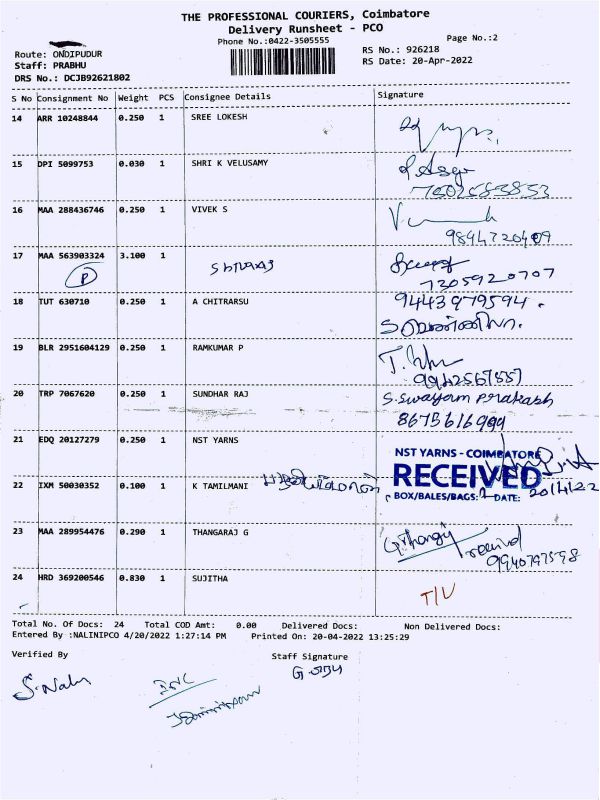 THE PROFESSIONAL COURIERS, Coimbatore
Delivery Runsheet - PCO
Phone No.:0422-3505555
Page No.:2
Route: ONDIPUDUR
Staff: PRABHU
DRS No.: DCJB92621802
RS No.: 926218
RS Date: 20-Apr-2022
S No Consignment No Weight PCS Consignee Details Signature
14 ARR 10248844 0.250 1 SREE LOKESH
15 DPI 5099753 0.030 1 SHRI K VELUSAMY
16 MAA 288436746 0.250 1 VIVEK S
9844720409
17 MAA 563903324 3.100 1
P
7305920707
18 TUT 630710 0.250 1 A CHITRARSU 9443979594.
19 BLR 2951604129 0.250 1 RAMKUMAR P
9942567557
20 TRP 7067620 0.250 1 SUNDHAR RAJ S. Swayam Prakash
8675616999
21 EDQ 20127279 0.250 1 NST YARNS
NST YARNS - COIMBATORE
RECEIVED
BOX/BALES/BAGS: DATE: 20/4/22
22 IXM 50030352 0.100 1 K TAMILMANI
23 MAA 289954476 0.290 1 THANGARAJ G
received
9940797598
24 HRD 369200546 0.830 1 SUJITHA
T/U
Total No. Of Docs: 24 Total COD Amt: 0.00 Delivered Docs: Non Delivered Docs:
Entered By :NALINIPCO 4/20/2022 1:27:14 PM Printed On: 20-04-2022 13:25:29
Verified By
Staff Signature